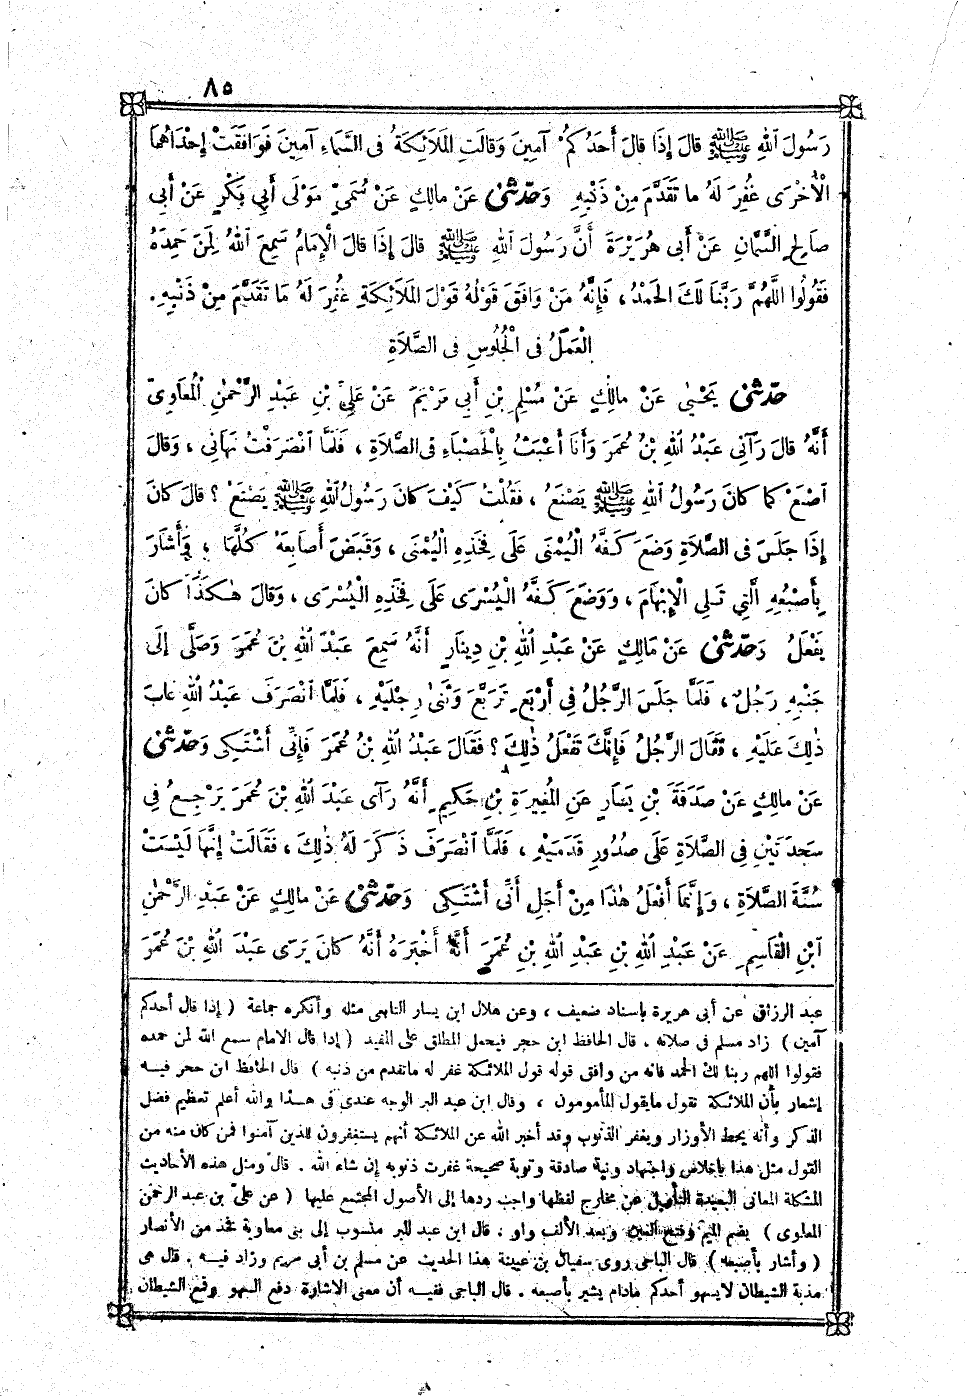 ٨٥
رَسُولَ ٱللهِ ﷺ قَالَ إِذَا قَالَ أَحَدُكُمْ آمِينَ وَقَالَتِ الْمَلَائِكَةُ فِى السَّمَاءِ آمِينَ فَوَافَقَتْ إِحْدَاهُمَا
الْأُخْرَى غُفِرَ لَهُ مَا تَقَدَّمَ مِنْ ذَنْبِهِ وَحَدَّثَنِى عَنْ مَالِكٍ عَنْ سُمَىٍّ مَوْلَى أَبِى بَكْرٍ عَنْ أَبِى
صَالِحٍ السَّمَّانِ عَنْ أَبِى هُرَيْرَةَ أَنَّ رَسُولَ ٱللهِ ﷺ قَالَ إِذَا قَالَ الْإِمَامُ سَمِعَ ٱللهُ لِمَنْ حَمِدَهُ
فَقُولُوا اللَّهُمَّ رَبَّنَا لَكَ الْحَمْدُ ، فَإِنَّهُ مَنْ وَافَقَ قَوْلُهُ قَوْلَ الْمَلَائِكَةِ غُفِرَ لَهُ مَا تَقَدَّمَ مِنْ ذَنْبِهِ.
الْعَمَلُ فِى الْجُلُوسِ فِى الصَّلَاةِ
حَدَّثَنِى يَحْيَى عَنْ مَالِكٍ عَنْ مُسْلِمِ بْنِ أَبِى مَرْيَمَ عَنْ عَلِىِّ بْنِ عَبْدِ الرَّحْمٰنِ الْمُعَاوِىِّ
أَنَّهُ قَالَ رَآنِى عَبْدُ ٱللهِ بْنُ عُمَرَ وَأَنَا أَعْبَثُ بِالْحَصْبَاءِ فِى الصَّلَاةِ ، فَلَمَّا ٱنْصَرَفْتُ نَهَانِى ، وَقَالَ
ٱصْنَعْ كَمَا كَانَ رَسُولُ ٱللهِ ﷺ يَصْنَعُ ، فَقُلْتُ كَيْفَ كَانَ رَسُولُ ٱللهِ ﷺ يَصْنَعُ ؟ قَالَ كَانَ
إِذَا جَلَسَ فِى الصَّلَاةِ وَضَعَ كَفَّهُ الْيُمْنَى عَلَى فَخِذِهِ الْيُمْنَى ، وَقَبَضَ أَصَابِعَهُ كُلَّهَا ، وَأَشَارَ
بِأَصْبُعِهِ الَّتِى تَلِى الْإِبْهَامَ ، وَوَضَعَ كَفَّهُ الْيُسْرَى عَلَى فَخِذِهِ الْيُسْرَى ، وَقَالَ هٰكَذَا كَانَ
يَفْعَلُ وَحَدَّثَنِى عَنْ مَالِكٍ عَنْ عَبْدِ ٱللهِ بْنِ دِينَارٍ أَنَّهُ سَمِعَ عَبْدَ ٱللهِ بْنَ عُمَرَ وَصَلَّى إِلَى
جَنْبِهِ رَجُلٌ ، فَلَمَّا جَلَسَ الرَّجُلُ فِى أَرْبَعٍ تَرَبَّعَ وَثَنَى رِجْلَيْهِ ، فَلَمَّا ٱنْصَرَفَ عَبْدُ ٱللهِ عَابَ
ذٰلِكَ عَلَيْهِ ، فَقَالَ الرَّجُلُ فَإِنَّكَ تَفْعَلُ ذٰلِكَ ؟ فَقَالَ عَبْدُ ٱللهِ بْنُ عُمَرَ فَإِنِّى أَشْتَكِى وَحَدَّثَنِى
عَنْ مَالِكٍ عَنْ صَدَقَةَ بْنِ يَسَارٍ عَنِ الْمُغِيرَةِ بْنِ حَكِيمٍ أَنَّهُ رَأَى عَبْدَ ٱللهِ بْنَ عُمَرَ يَرْجِعُ فِى
سَجْدَتَيْنِ فِى الصَّلَاةِ عَلَى صُدُورِ قَدَمَيْهِ ، فَلَمَّا ٱنْصَرَفَ ذَكَرَ لَهُ ذٰلِكَ ، فَقَالَتْ إِنَّهَا لَيْسَتْ
سُنَّةَ الصَّلَاةِ ، وَإِنَّمَا أَفْعَلُ هٰذَا مِنْ أَجَلِ أَنِّى أَشْتَكِى وَحَدَّثَنِى عَنْ مَالِكٍ عَنْ عَبْدِ الرَّحْمٰنِ
ٱبْنِ الْقَاسِمِ عَنْ عَبْدِ ٱللهِ بْنِ عَبْدِ ٱللهِ بْنِ عُمَرَ أَنَّهُ أَخْبَرَهُ أَنَّهُ كَانَ يَرَى عَبْدَ ٱللهِ بْنَ عُمَرَ
عبد الرزاق عن أبى هريرة باسناد ضعيف ، وعن هلال ابن يسار التابعى مثله وأنكره جماعة ( إذا قال أحدكم
آمين ) زاد مسلم فى صلاته . قال الحافظ ابن حجر فيحمل المطلق على المقيد ( إذا قال الامام سمع الله لمن حمده
فقولوا اللهم ربنا لك الحمد فانه من وافق قوله قول الملائكة غفر له ماتقدم من ذنبه ) قال الحافظ ابن حجر فيه
إشعار بأن الملائكة تقول مايقول المأمومون ، وقال ابن عبد البر الوجه عندى فى هذا والله أعلم تعظيم فضل
الذكر وأنه يحط الأوزار ويغفر الذنوب وقد أخبر الله عن الملائكة أنهم يستغفرون للذين آمنوا فمن كان منه من
القول مثل هذا باخلاص واجتهاد ونية صادقة وتوبة صحيحة غفرت ذنوبه إن شاء الله . قال ومثل هذه الأحاديث
المشكلة المعانى البعيدة التأويل عن مخارج لفظها واجب ردها إلى الأصول المجتمع عليها ( عن على بن عبد الرحمن
المعاوى ) بضم الميم وفتح العين وبعد الألف واو . قال ابن عبد البر منسوب إلى بنى معاوية فخذ من الأنصار
( وأشار بأصبعه ) قال الباجى روى سفيان بن عيينة هذا الحديث عن مسلم بن أبى مريم وزاد فيه . قال هى
مذبة الشيطان لايسهو أحدكم مادام يشير بأصبعه . قال الباجى ففيه أن معنى الاشارة دفع السهو وقمع الشيطان